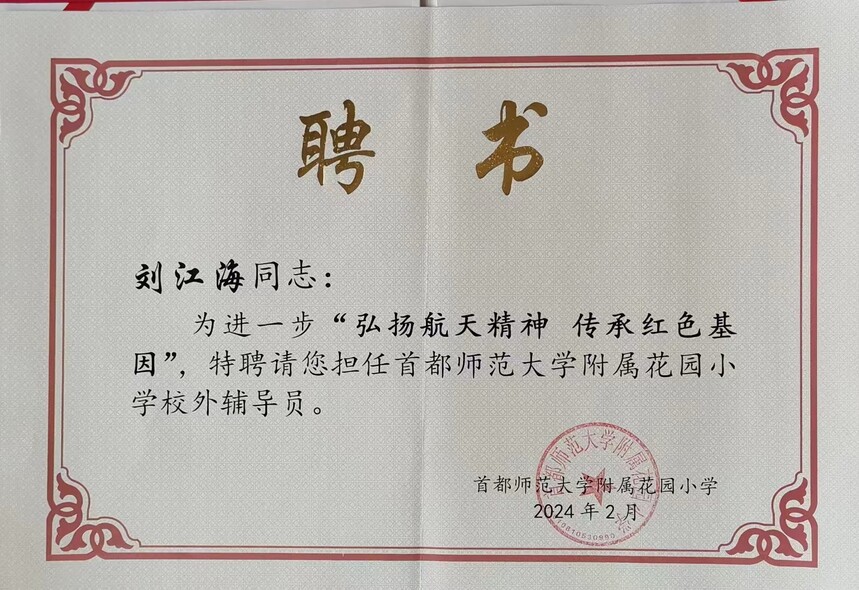 聘 书
刘江海同志：
为进一步“弘扬航天精神 传承红色基
因”，特聘请您担任首都师范大学附属花园小
学校外辅导员。
首都师范大学附属花园小学
2024年2月
首都师范大学附属花园小学